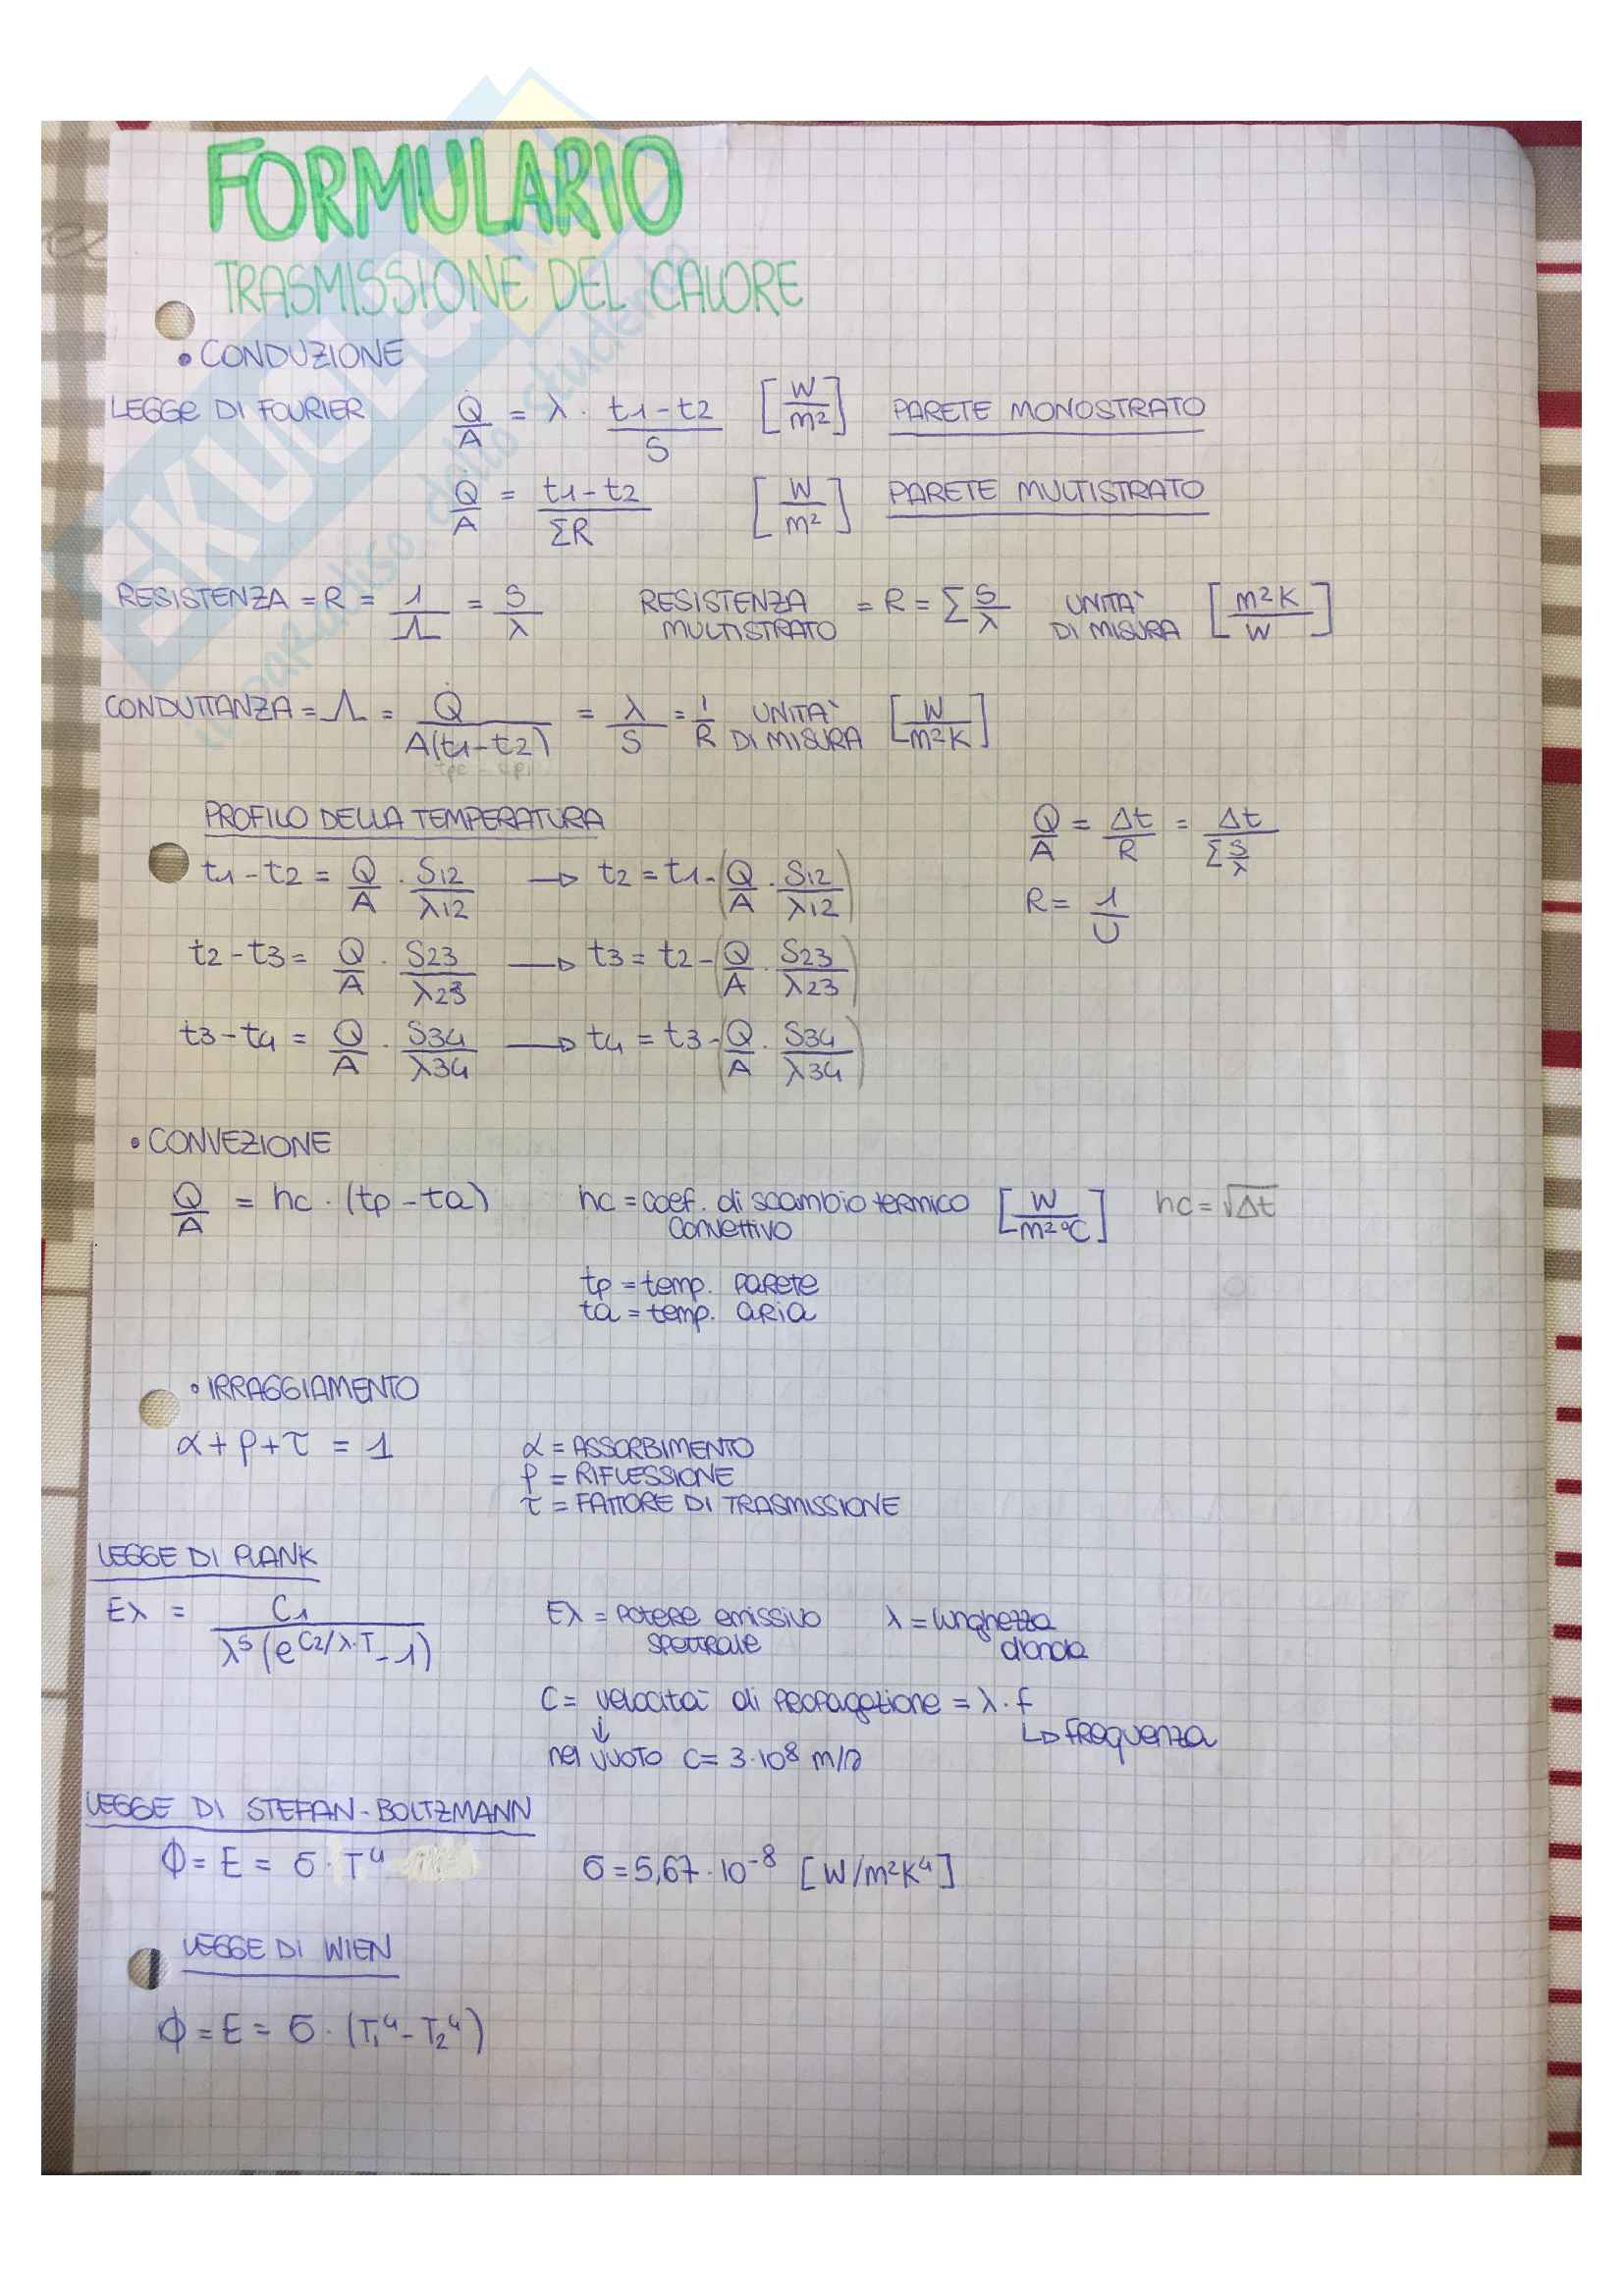 FORMULARIO
TRASMISSIONE DEL CALORE
• CONDUZIONE
LEGGE DI FOURIER Q̇/A = λ · (t1-t2)/S [W/m²] PARETE MONOSTRATO
Q̇/A = (t1-t2)/ΣR [W/m²] PARETE MULTISTRATO
RESISTENZA = R = 1/Λ = S/λ RESISTENZA MULTISTRATO = R = Σ S/λ UNITA' DI MISURA [m²K/W]
CONDUTTANZA = Λ = Q̇/A(t1-t2) = λ/S = 1/R UNITA' DI MISURA [W/m²K]
PROFILO DELLA TEMPERATURA
Q/A = Δt/R = Δt/Σ S/λ
t1-t2 = Q/A · S12/λ12 → t2 = t1-(Q/A · S12/λ12)
R = 1/U
t2-t3 = Q/A · S23/λ23 → t3 = t2-(Q/A · S23/λ23)
t3-t4 = Q/A · S34/λ34 → t4 = t3-(Q/A · S34/λ34)
• CONVEZIONE
Q/A = hc · (tp-ta) hc = coef. di scambio termico convettivo [W/m²°C] hc = √Δt
tp = temp. parete
ta = temp. aria
• IRRAGGIAMENTO
α+ρ+τ = 1 α = ASSORBIMENTO
ρ = RIFLESSIONE
τ = FATTORE DI TRASMISSIONE
LEGGE DI PLANK
Eλ = C1/λ⁵(e^C2/λ·T -1) Eλ = potere emissivo spettrale λ = lunghezza d'onda
C = velocità di propagazione = λ · f
↳ frequenza
↓
nel vuoto c = 3·10⁸ m/s
LEGGE DI STEFAN-BOLTZMANN
Φ = E = σ · T⁴ σ = 5,67·10⁻⁸ [W/m²K⁴]
LEGGE DI WIEN
Φ = E = σ · (T₁⁴-T₂⁴)